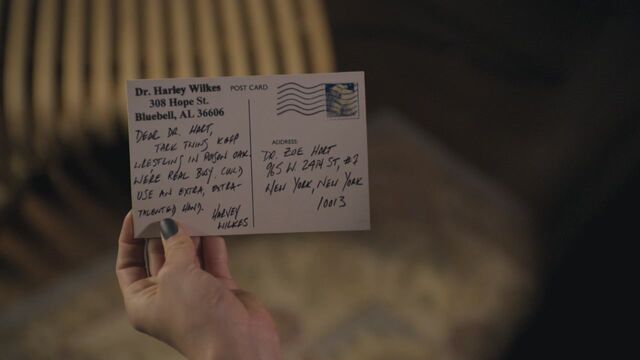 Dr. Harley Wilkes
308 Hope St.
Bluebell, AL 36606
DEAR DR. HART,
TARK TWINS KEEP
WRESTLING IN POISON OAK.
WE'RE REAL BUSY. COULD
USE AN EXTRA, EXTRA-
TALENTED HAND.
HARVEY
WILKES
POST CARD
ADDRESS
DR. ZOE HART
965 W. 24TH ST, #2
NEW YORK, NEW YORK
10013